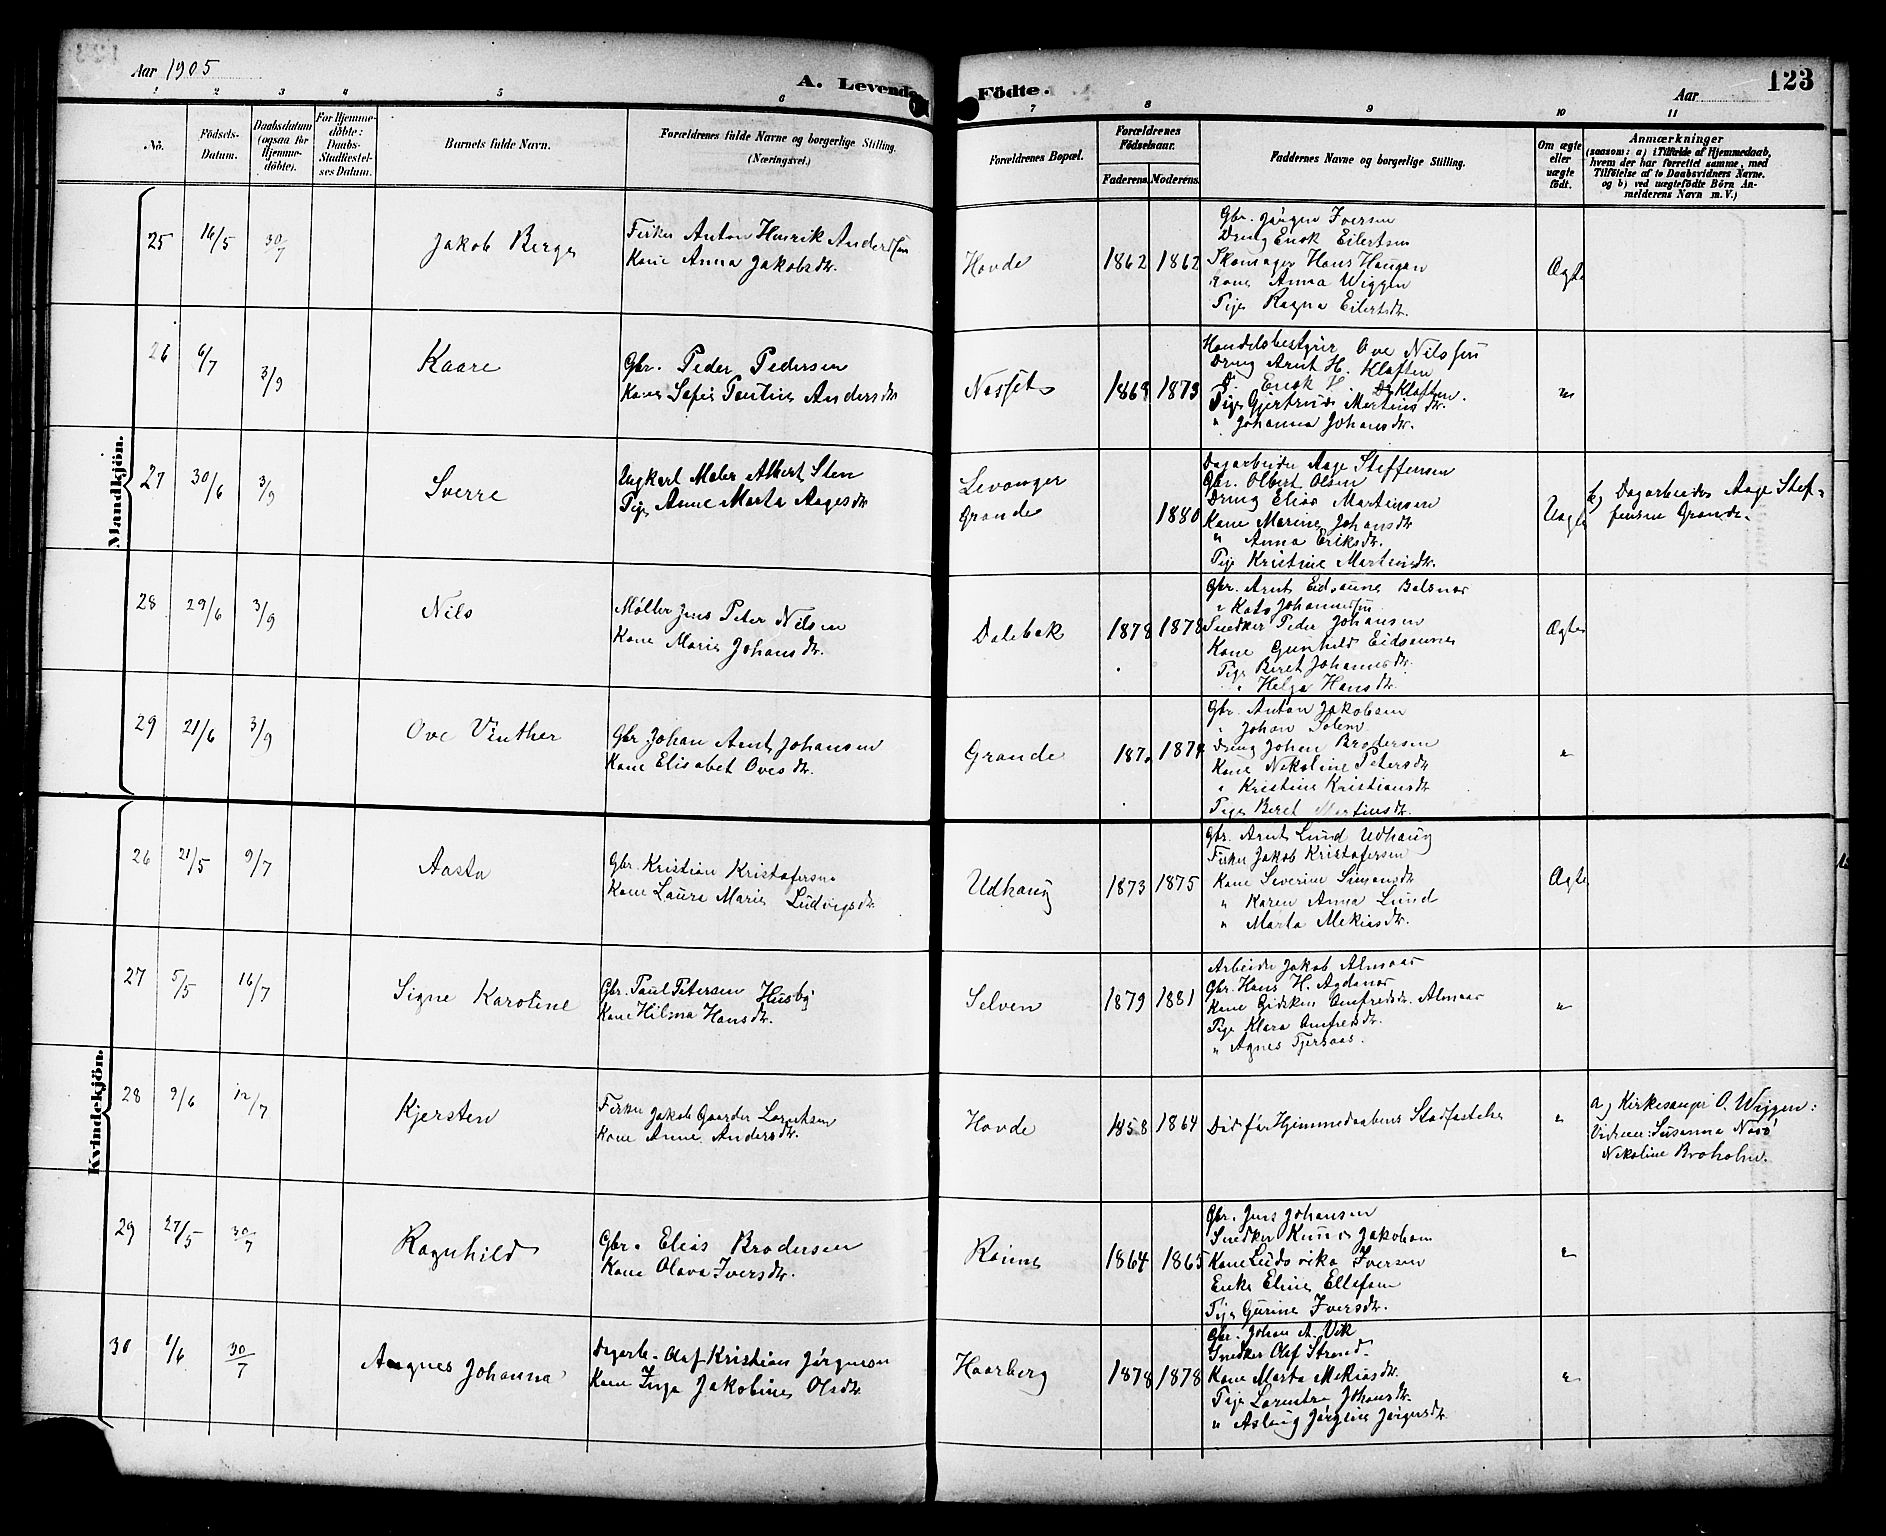 Aar 1905
A. Levende Födte.
Aar
123
1 2 3 4 5 6 7 8 9 10 11
No.
Födsels-
Datum.
Daabsdatum
(ogsaa for
Hjemme-
döbte).
For Hjemme-
döbte:
Daabs-
Stadfæstel-
ses Datum.
Barnets fulde Navn.
Forældrenes fulde Navne og borgerlige Stilling.
(Næringsvei.)
Forældrenes Bopæl.
Forældrenes
Födselsaar.
Faderens. Moderens.
Faddernes Navne og borgerlige Stilling.
Om ægte
eller
uægte
födt.
Anmærkninger
(saasom: a) i Tilfælde af Hjemmedaab,
hvem der har forrettet samme, med
Tilföielse af to Daabsvidners Navne.
og b) ved uægtefödte Börn An-
melderens Navn m. V.)
Mandkjön.
25 16/5 30/7 Jakob Berge
Fisker Anton Henrik Anderssen
Kone Anna Jakobsdtr.
Hovde 1862 1862
Gbr. Jørgen Iversen
Dreng Enok Eilertsen
Skomager Hans Haugan
Kone Anna Wiggen
Pige Ragna Eilertsdtr.
Ægte
26 6/7 3/9 Kaare
Gbr. Peder Pedersen
Kone Sofie Pauline Andersdtr
Nesset 1869 1873
Handelsbestyrer Ove Nilssen
Dreng Arnt H. Kloften
D. Enok H. Kloften.
Pige Gjertrude Martinsdtr.
" Johanna Johansdtr.
"
27 30/6 3/9 Sverre
Ungkarl Maler Albert Sten
Pige Anne Marta Aagesdtr
Levanger
Grande 1880
Dagarbeider Aage Steffensen
Gbr. Olbert Olsen
Dreng Elias Martinsen
Kone Marine Johansdtr
" Anna Eriksdtr.
Pige Kristine Martinsdtr.
Uægte
b) Dagarbeider Aage Stef-
fensen Grande.
28 29/6 3/9 Nils
Møller Jens Peter Nilsen
Kone Marie Johansdtr.
Dalebak 1878 1878
Gbr. Arnt Eidsaune Balsnes
" Johannessen
Snedker Peder Johansen
Kone Gunhild Eidsaune
Pige Beret Johannesdtr
" Helga Hansdtr.
Ægte
29 21/6 3/9 Ove Vinther
Gbr. Johan Arnt Johansen
Kone Elisabet Ovesdtr.
Grande 1874
Gbr. Anton Jakobsen
" Johan Solem
Dreng Johan Brodersen
Kone Nikoline Petersdtr
" Kristine Kristiansdtr
Pige Beret Martinsdtr.
"
Kvindekjön.
26 21/5 9/7 Aasta
Gbr. Kristian Kristofersen
Kone Laura Marie Ludvigsdtr.
Udhaug 1873 1875
Gbr. Arnt Lund Udhaug
Fisker Jakob Kristofersen
Kone Severine Simonsdtr
" Karen Anna Lund
" Marta Mekiasdtr.
Ægte
27 5/5 16/7 Signe Karoline
Gbr. Paul Petersen Husby
Kone Hilma Hansdtr.
Selven 1879 1881
Arbeider Jakob Almaas
Gbr. Hans H. Agdanes
Kone Gidsken Amfredsdtr. Almaas
Pige Klara Amfredsdtr.
" Agnes
"
28 9/6 12/7 Kjersten
Fisker Jakob Gaarder Lorentsen
Kone Anne Andersdtr.
Hovde 1858 1864
Død før Hjemmedaabens Stadfæstelse
"
a) Kirkesanger O. Wiggen:
Vidner: Susanna Næss
Nikoline Broholm.
29 27/5 30/7 Ragnhild
Gbr. Elias Brodersen
Kone Olava Iversdtr.
1864 1865
Gbr. Jens Johansen
Snedker Jakobsen
Kone Ludovika Iversen
Enke Eline Ellefsen
Pige Gurine Iversdtr.
"
30 1/6 30/7 Aagnes Johanna
Dagarb. Olaf Kristian Jørgensen
Kone Inga Jakobine Olsdtr
Haarberg 1878 1878
Gbr. Johan A. Vik
Snedker Olaf Strand.
Kone Marta Mekiasdtr.
Pige Lorentse Johansdtr.
" Aslaug Jørgine Jørgensdtr
"